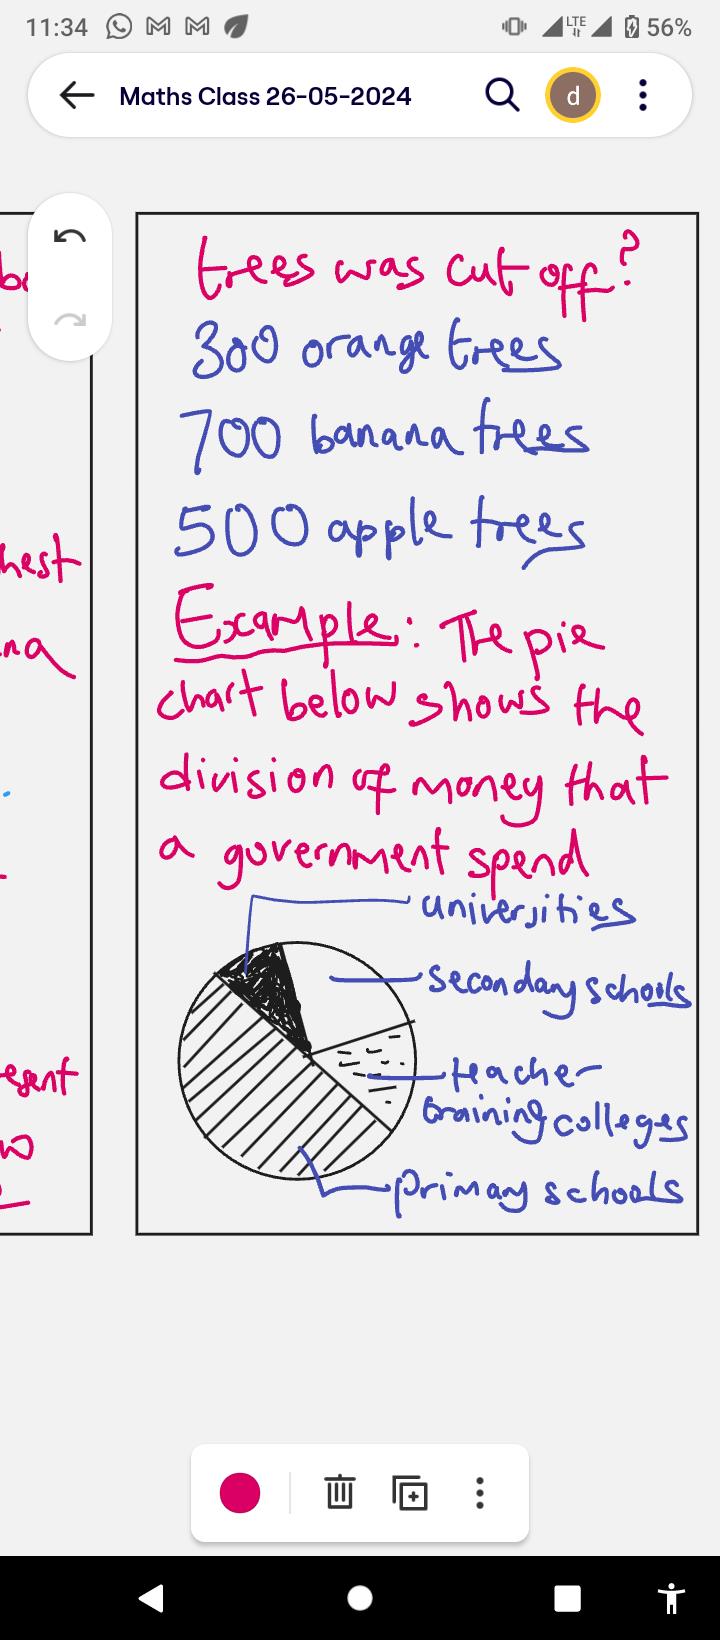 11:34
LTE
56%
Maths Class 26-05-2024
d
trees was cut off?
300 orange trees
700 banana trees
500 apple trees
Example: The pie
chart below shows the
division of money that
a government spend
universities
secondary schools
teacher
training colleges
primary schools
hest
na
esent